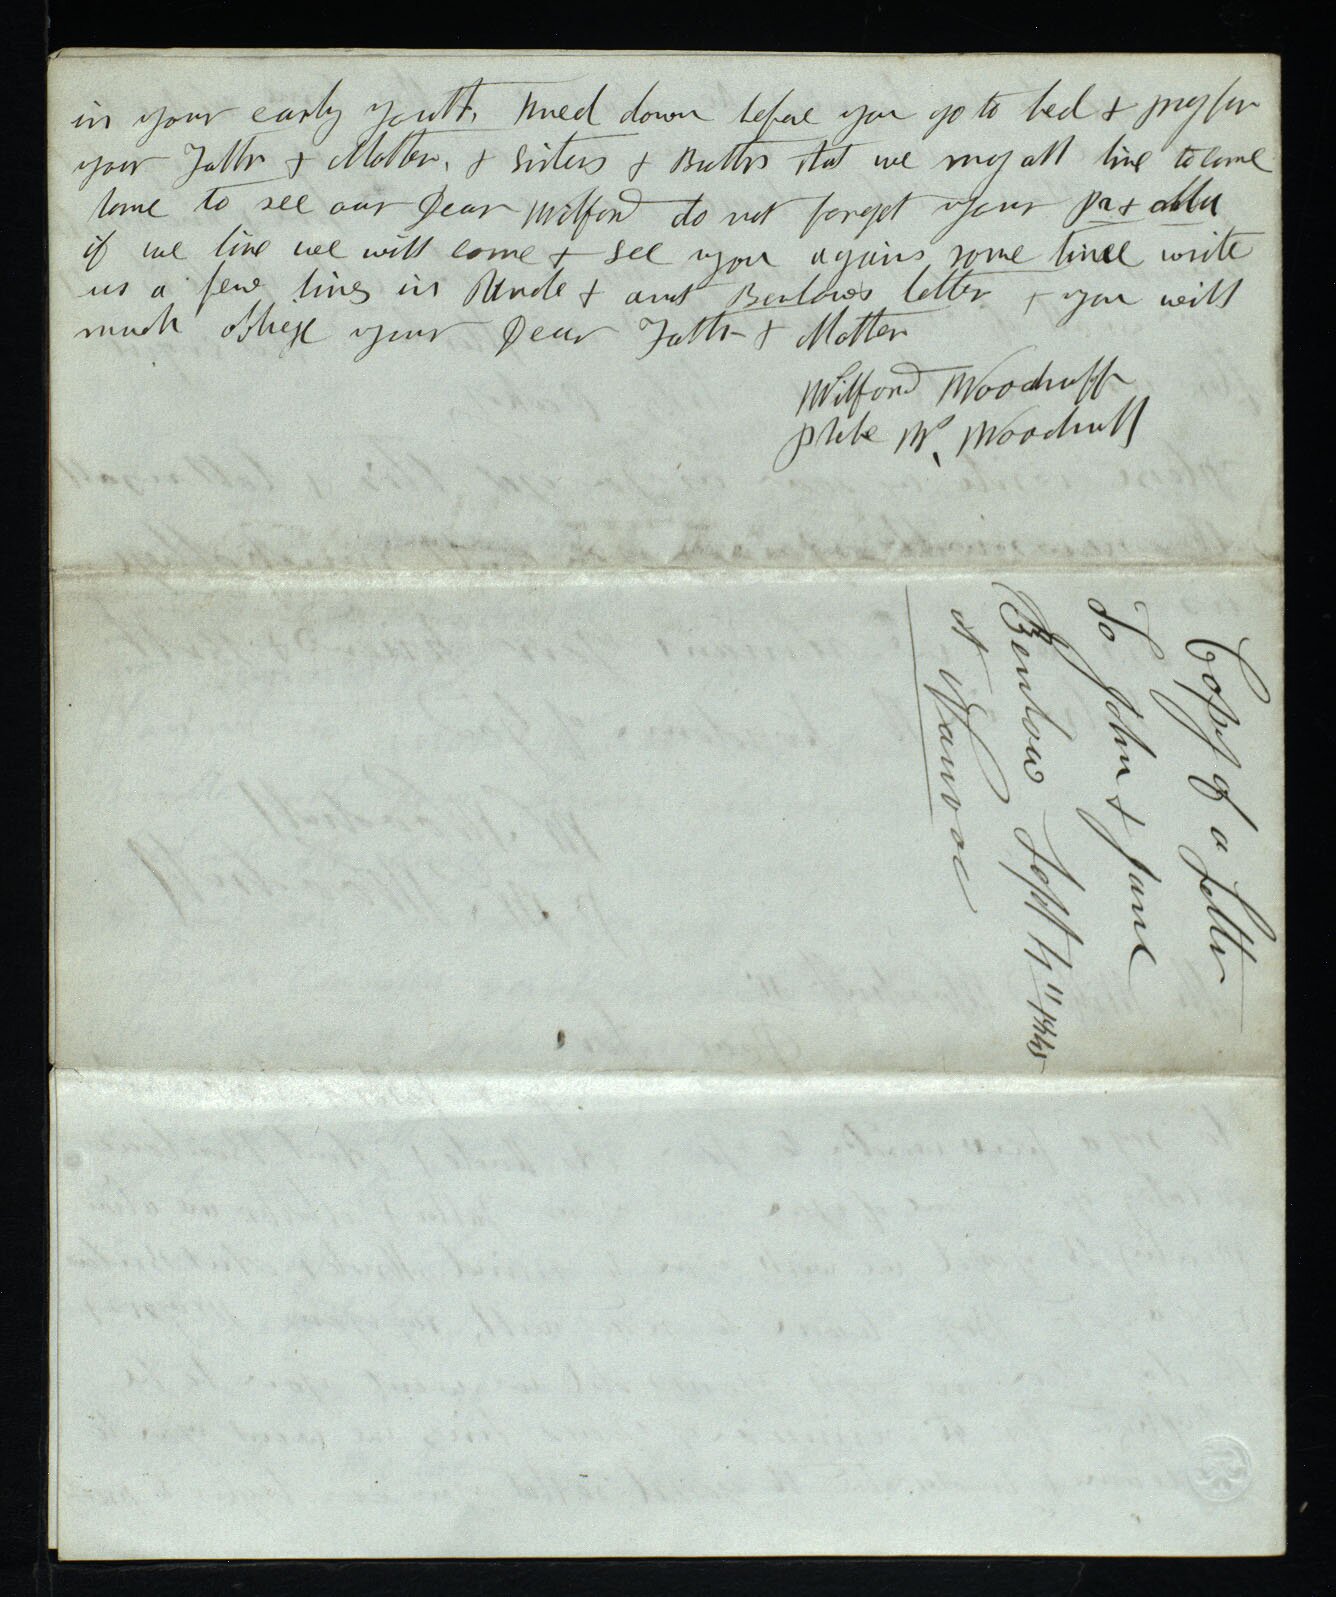 in your early youth, kneel down before you go to bed & pray for
your Father & Mother, & Sisters & Brothers that we may all live to come
home to see our Dear Wilford do not forget your Pa & Ma
if we live we will come & see you again some time write
us a few lines in Uncle & aunt Benbow's letter & you will
much oblige your Dear Father & Mother
Wilford Woodruff
Phebe W. Woodruff
Copy of a Letter
To John & Jane
Benbow Sept 4" 1845
at Nauvoo